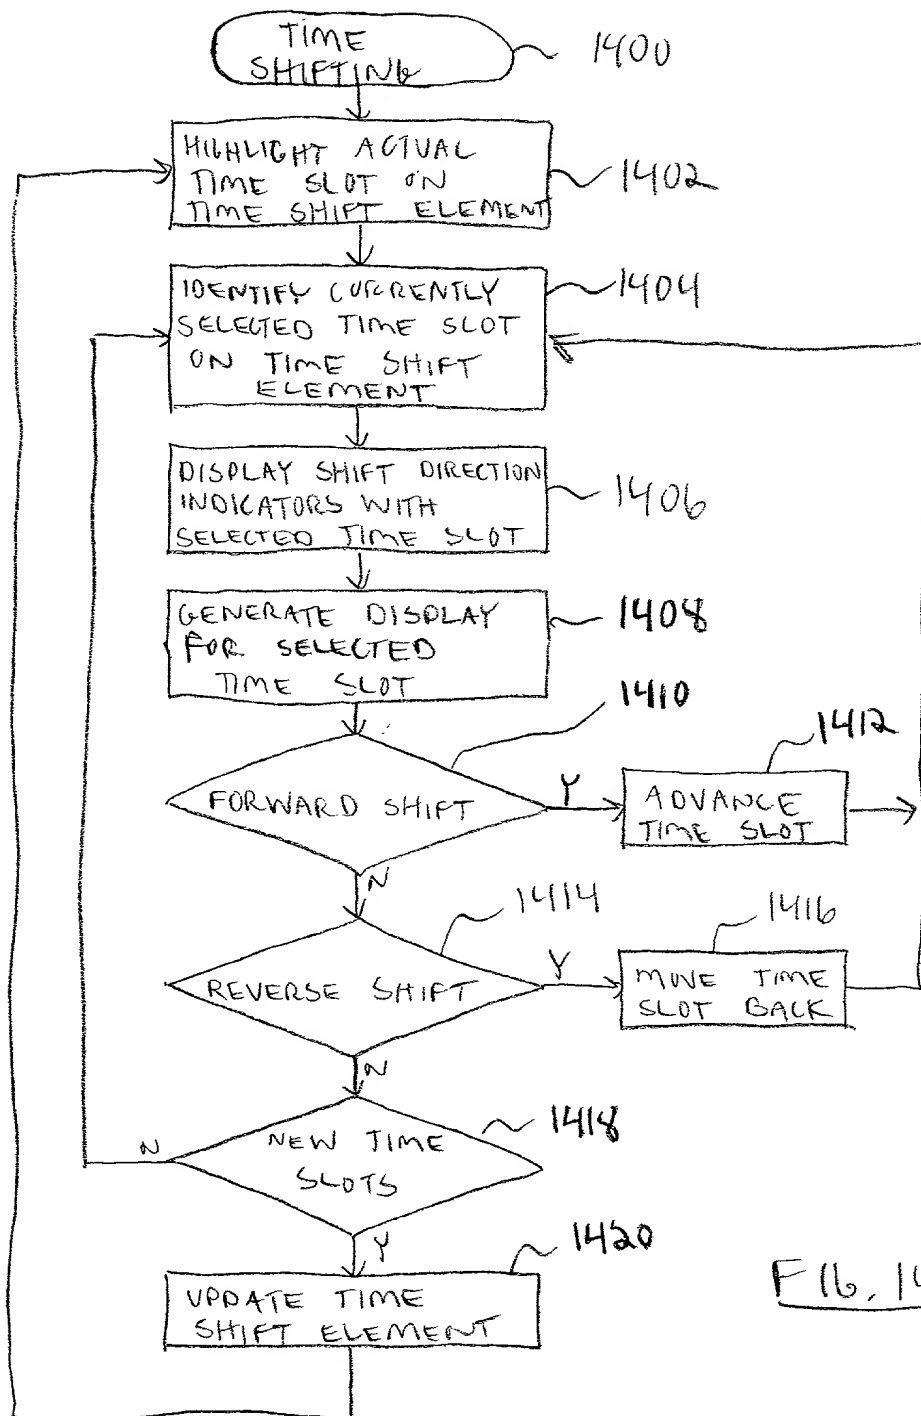 TIME
SHIFTING
1400
HIGHLIGHT ACTUAL
TIME SLOT ON
TIME SHIFT ELEMENT
1402
IDENTIFY CURRENTLY
SELECTED TIME SLOT
ON TIME SHIFT
ELEMENT
1404
DISPLAY SHIFT DIRECTION
INDICATORS WITH
SELECTED TIME SLOT
1406
GENERATE DISPLAY
FOR SELECTED
TIME SLOT
1408
1410
FORWARD SHIFT
Y
1412
ADVANCE
TIME SLOT
N
1414
REVERSE SHIFT
Y
1416
MOVE TIME
SLOT BACK
N
1418
NEW TIME
SLOTS
N
Y
1420
UPDATE TIME
SHIFT ELEMENT
FIG. 14